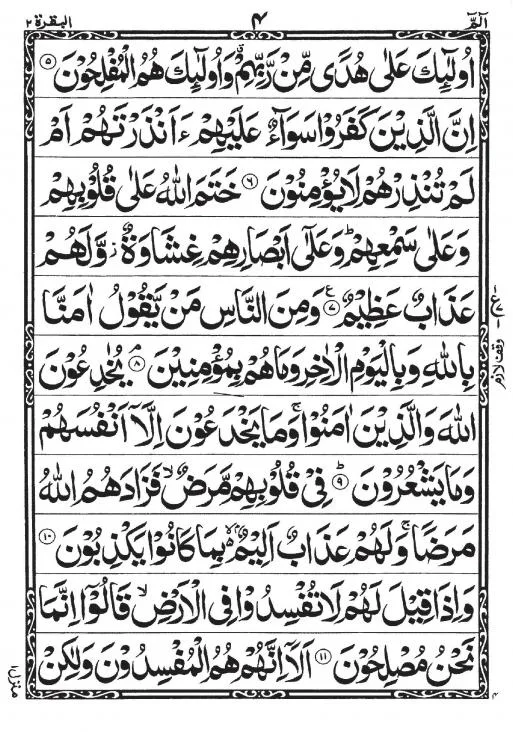 الٓمّٓ ۴ البقرة ۲
اُولٰٓئِكَ عَلٰى هُدًى مِّنْ رَّبِّهِمْ ۙ وَاُولٰٓئِكَ هُمُ الْمُفْلِحُوْنَ ۵
اِنَّ الَّذِيْنَ كَفَرُوْا سَوَآءٌ عَلَيْهِمْ ءَاَنْذَرْتَهُمْ اَمْ
لَمْ تُنْذِرْهُمْ لَا يُؤْمِنُوْنَ ۶ خَتَمَ اللّٰهُ عَلٰى قُلُوْبِهِمْ
وَعَلٰى سَمْعِهِمْ ؕ وَعَلٰٓى اَبْصَارِهِمْ غِشَاوَةٌ ؗ وَّلَهُمْ
عَذَابٌ عَظِيْمٌ ۷ ع وَمِنَ النَّاسِ مَنْ يَّقُوْلُ اٰمَنَّا
بِاللّٰهِ وَبِالْيَوْمِ الْاٰخِرِ وَمَا هُمْ بِمُؤْمِنِيْنَ ۘ ۸ يُخٰدِعُوْنَ
اللّٰهَ وَالَّذِيْنَ اٰمَنُوْا ۚ وَمَا يَخْدَعُوْنَ اِلَّآ اَنْفُسَهُمْ
وَمَا يَشْعُرُوْنَ ؕ ۹ فِيْ قُلُوْبِهِمْ مَّرَضٌ ۙ فَزَادَهُمُ اللّٰهُ
مَرَضًا ۚ وَلَهُمْ عَذَابٌ اَلِيْمٌ ۢ ۙ بِمَا كَانُوْا يَكْذِبُوْنَ ۱۰
وَاِذَا قِيْلَ لَهُمْ لَا تُفْسِدُوْا فِي الْاَرْضِ ۙ قَالُوْٓا اِنَّمَا
نَحْنُ مُصْلِحُوْنَ ۱۱ اَلَآ اِنَّهُمْ هُمُ الْمُفْسِدُوْنَ وَلٰكِنْ
ع ۷
وقف لازم
منزل ۱